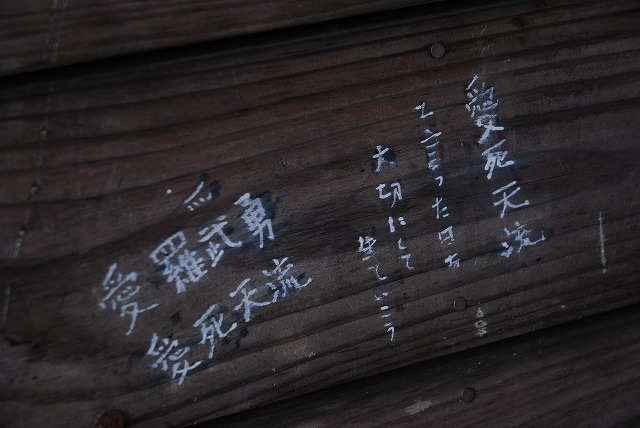 愛死天流
と言った日を
大切にして
生ていこう
愛羅武勇
愛死天流